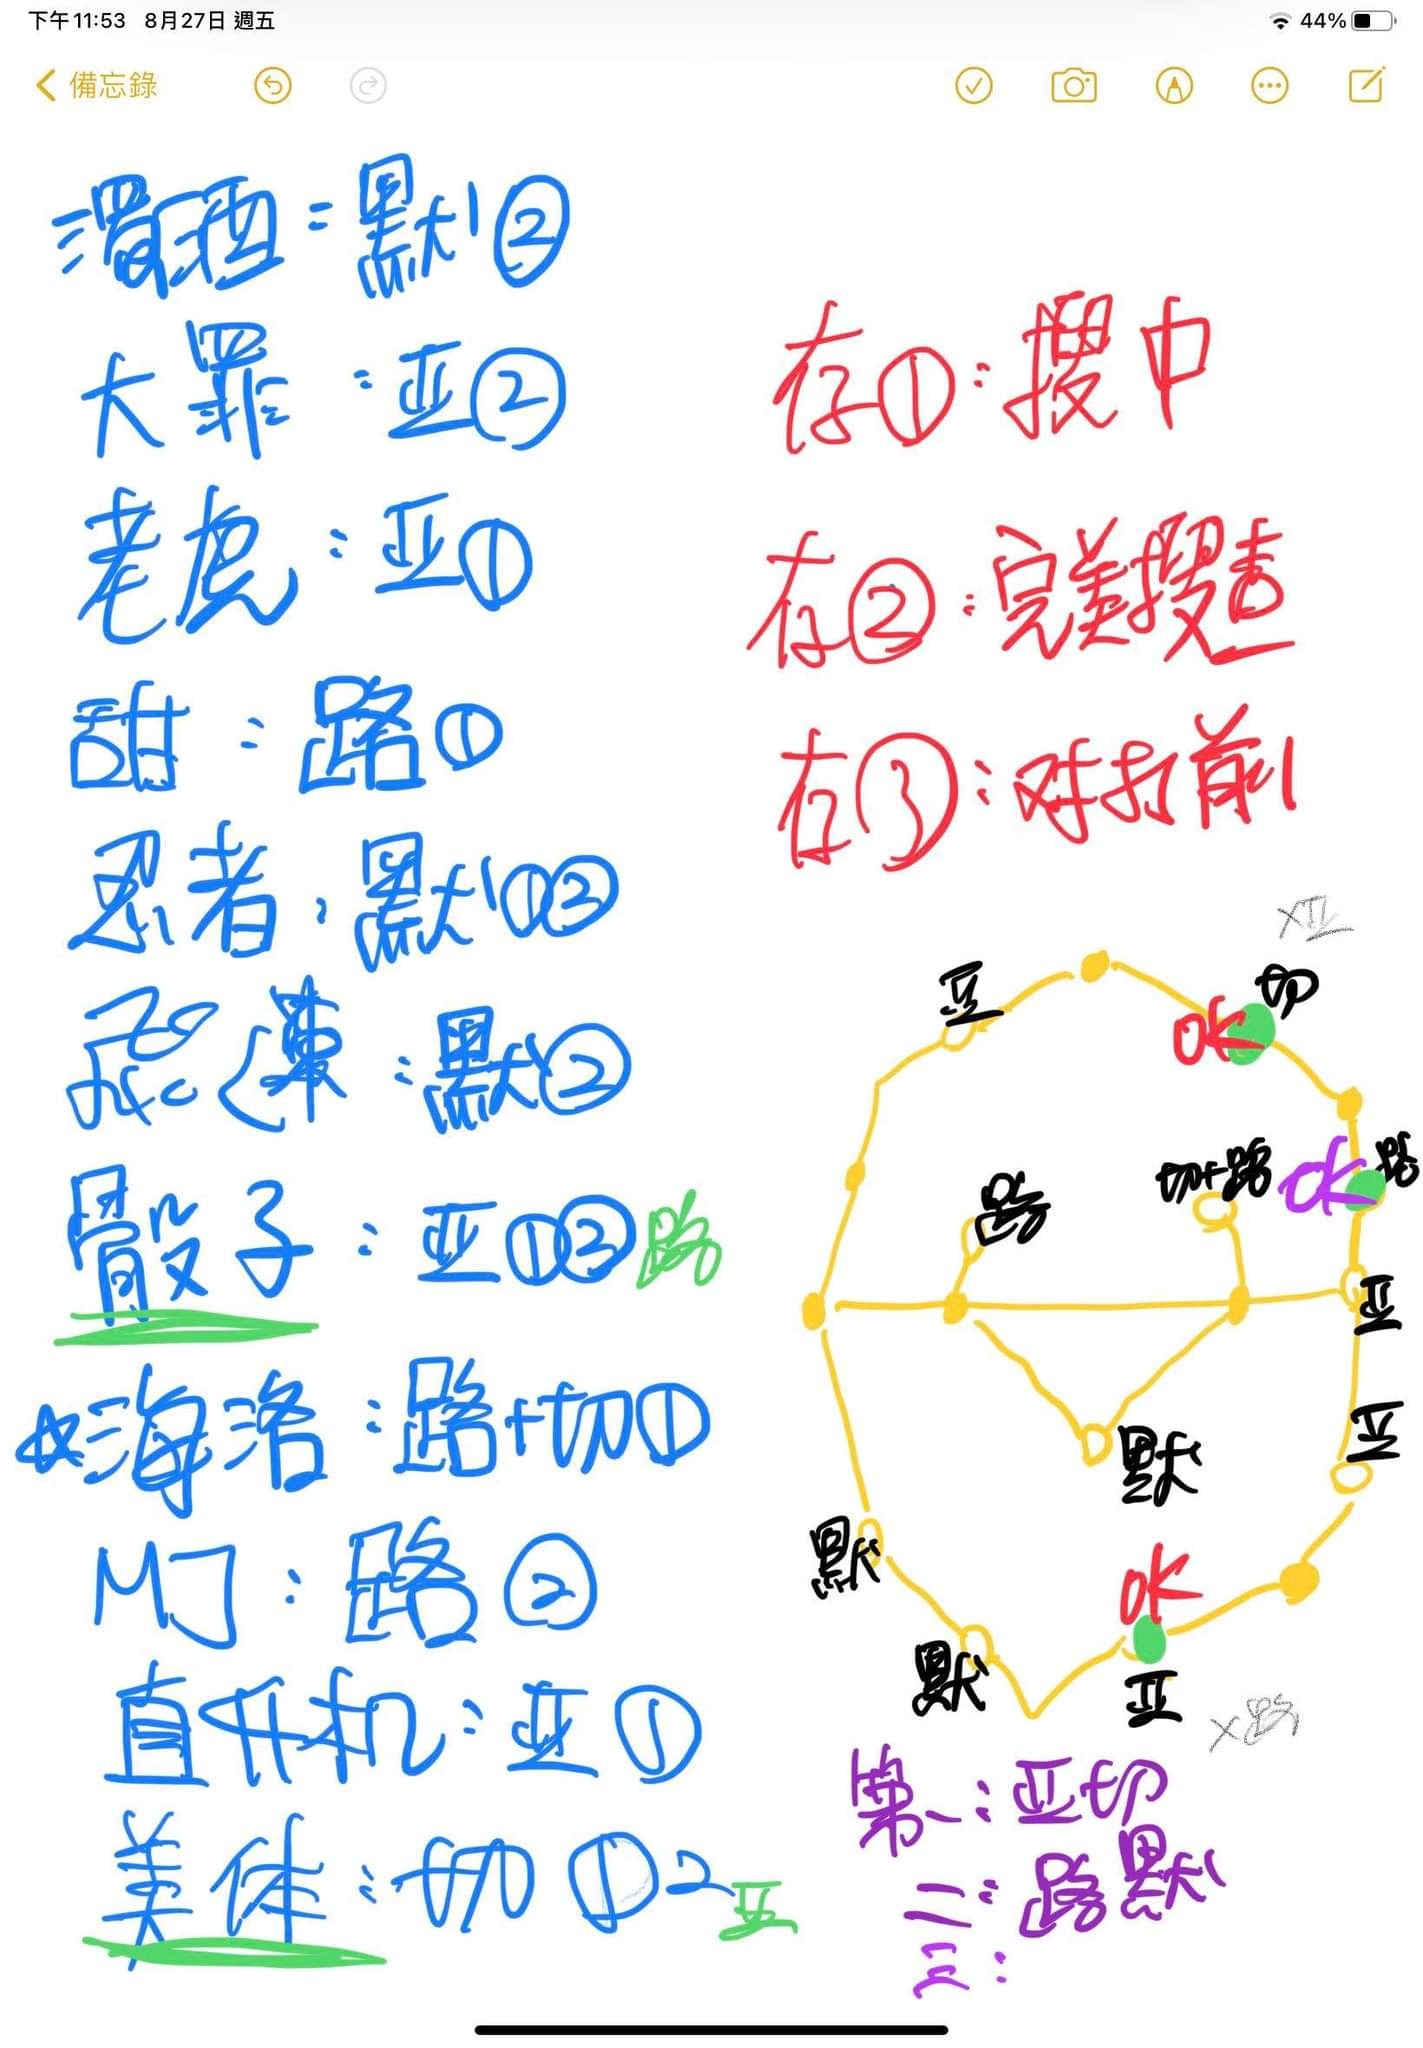 下午11:53 8月27日 週五
44%
備忘錄
濁酒：默②
大罪：亚②
老虎：亚①
甜：路①
忍者：默①②
：默②
骰子：亚①②路
☆海洛：路+切①
MJ：路②
直升机：亚①
美体：切①2亚
存①：搜中
存②：完美搜查
存③：对打前
X亚
亚
切
OK
路
切+路
OK
路
亚
默
亚
默
OK
默
亚
X路
第一：亚切
二：路默
三：